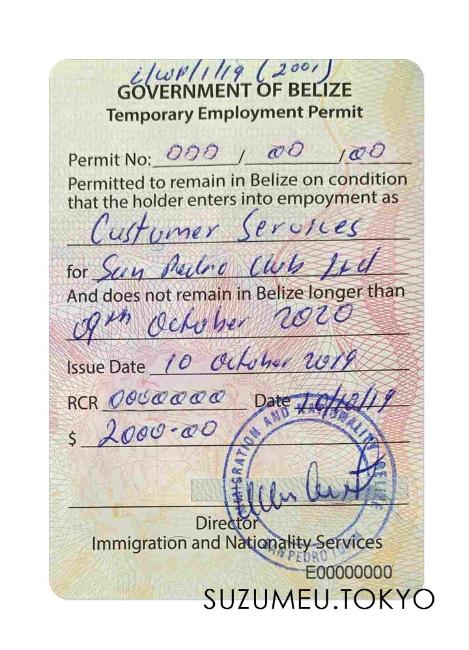 i/WP/1/19 (2001)
GOVERNMENT OF BELIZE
Temporary Employment Permit
Permit No: 000 / 00 / 00
Permitted to remain in Belize on condition
that the holder enters into empoyment as
Customer Services
for San Pedro Club Ltd
And does not remain in Belize longer than
09th October 2020
Issue Date 10 October 2019
RCR 0000000 Date 10/10/19
$ 2000-00
IMMIGRATION AND NATIONALITY BELIZE
SAN PEDRO TOWN
Director
Immigration and Nationality Services
E00000000
SUZUMEU.TOKYO